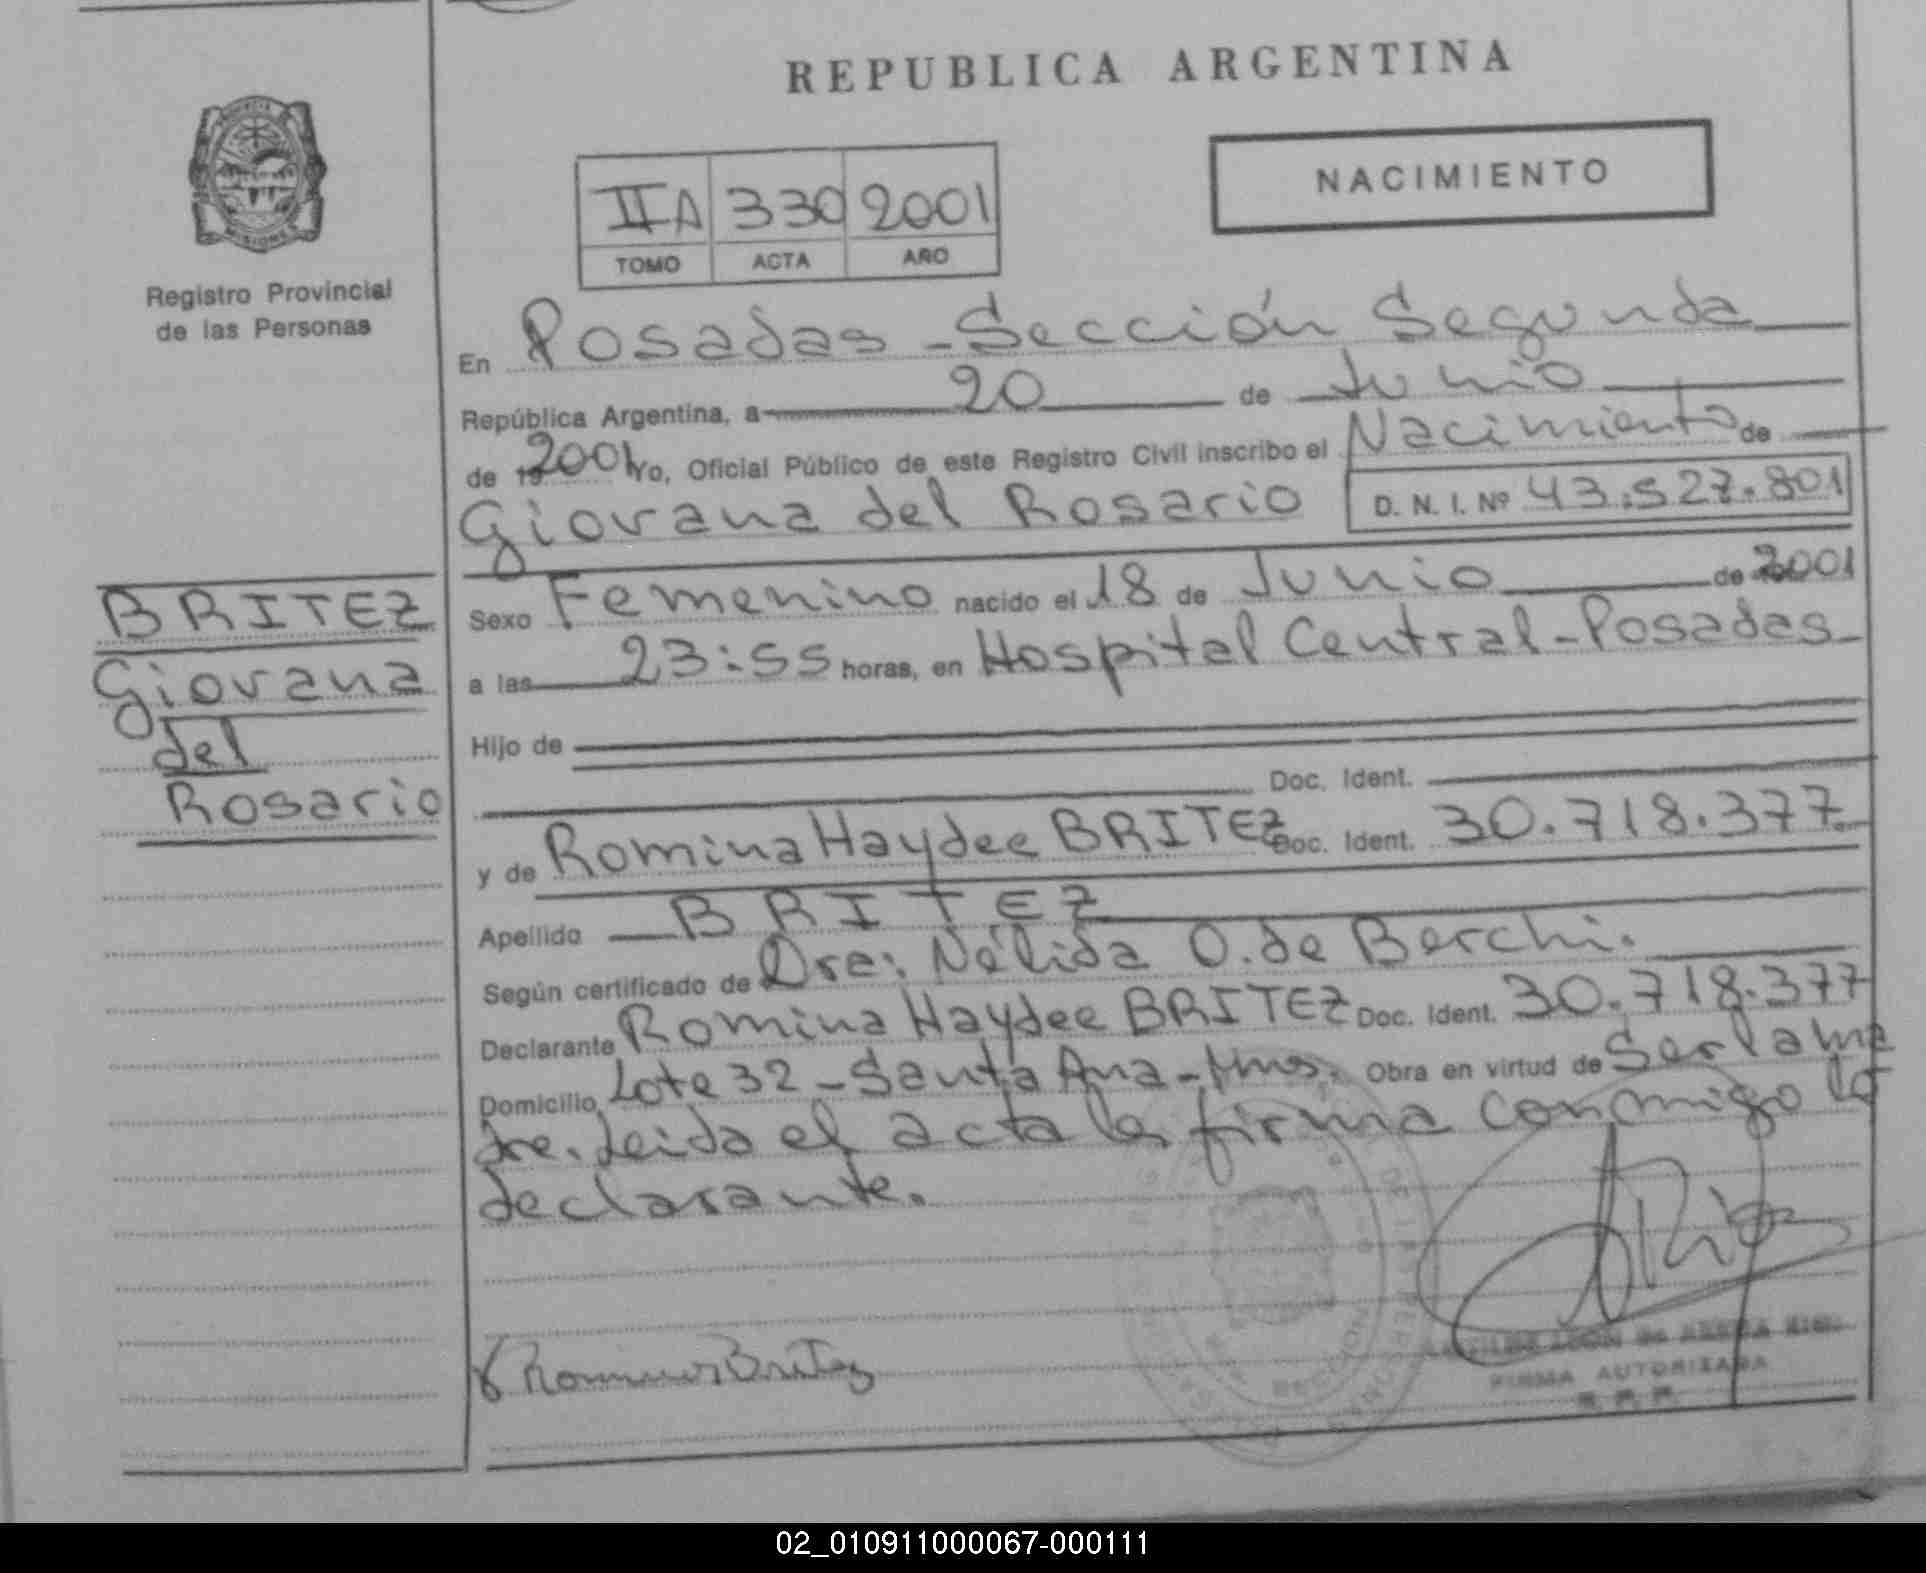 REPUBLICA ARGENTINA
NACIMIENTO
IIA 330 2001
TOMO ACTA AÑO
MISIONES
Registro Provincial
de las Personas
BRITEZ
Giovana
del
Rosario
En Posadas - Sección Segunda
República Argentina, a 20 de Junio
de 19 2001 Yo, Oficial Público de este Registro Civil inscribo el Nacimiento de
Giovana del Rosario D. N. I. Nº 43.527.801
Sexo Femenino nacido el 18 de Junio de 2001
a las 23:55 horas, en Hospital Central - Posadas
Hijo de
Doc. Ident.
y de Romina Haydee BRITEZ Doc. Ident. 30.718.377
Apellido BRITEZ
Según certificado de Dra: Nélida O. de Berchi.
Declarante Romina Haydee BRITEZ Doc. Ident. 30.718.377
Domicilio Lote 32 - Santa Ana - Mnes. Obra en virtud de Ser la ma
dre. Leida el acta la firma conmigo la
declarante.
Romina Britez
FIRMA AUTORIZADA
02_010911000067-000111